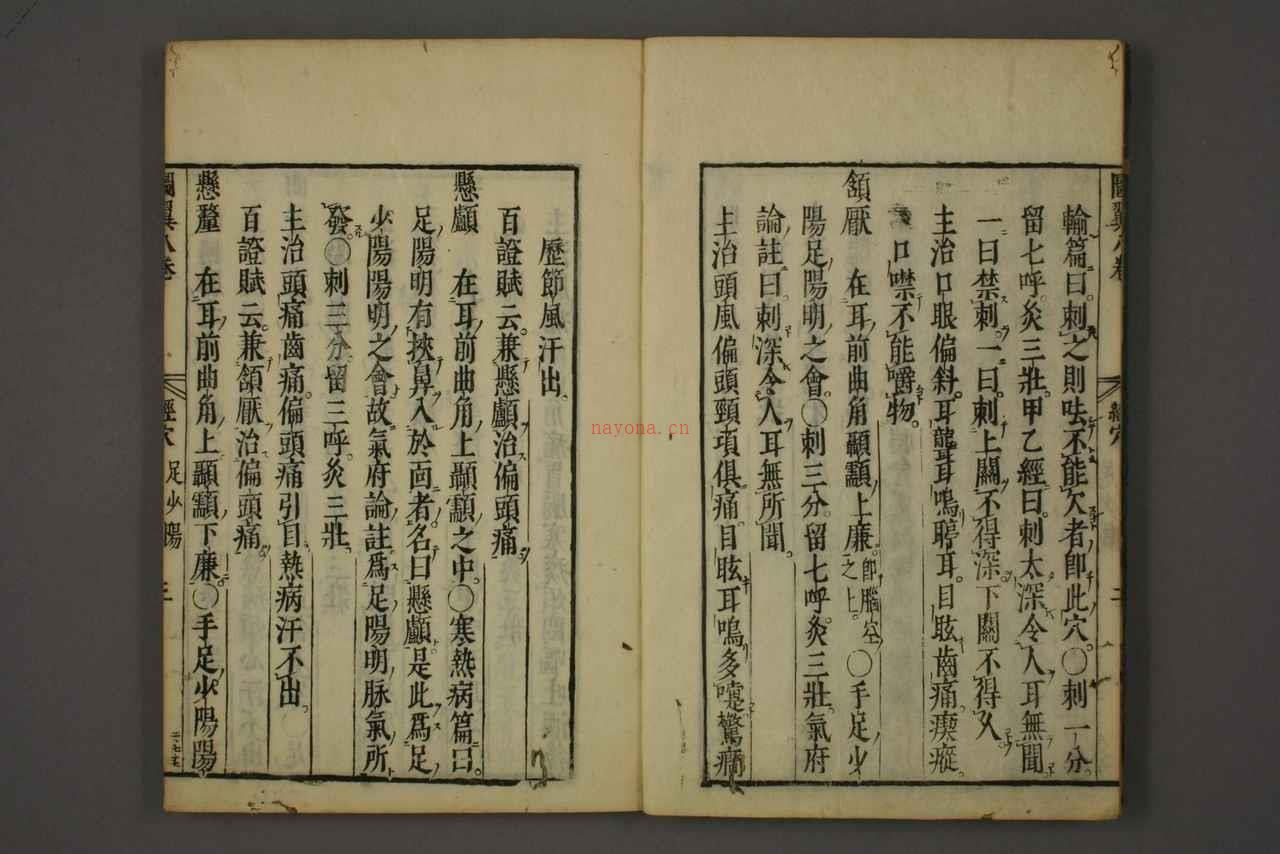 圖翼八卷 經穴 二
輸篇曰刺之則呿不能欠者卽此穴○刺一分
留七呼灸三壯甲乙經曰刺太深令人耳無聞
一曰禁刺一曰刺上關不得深下關不得久
主治口眼偏斜耳聾耳鳴聤耳目眩齒痛瘈瘲
口噤不能嚼物
頷厭 在耳前曲角顳顬上廉卽腦空之上○手足少
陽足陽明之會○刺三分留七呼灸三壯氣府
論註曰刺深令人耳無所聞
主治頭風偏頭頸項俱痛目眩耳鳴多嚏驚癇
歷節風汗出
百證賦云兼懸顱治偏頭痛
懸顱 在耳前曲角上顳顬之中○寒熱病篇曰
足陽明有挾鼻入於面者名曰懸顱是此爲足
少陽陽明之會故氣府論註爲足陽明脉氣所
發○刺三分留三呼灸三壯
主治頭痛齒痛偏頭痛引目熱病汗不出
百證賦云兼頷厭治偏頭痛
懸釐 在耳前曲角上顳顬下廉○手足少陽陽
圖翼八卷 經穴 足少陽 三
nayona.cn